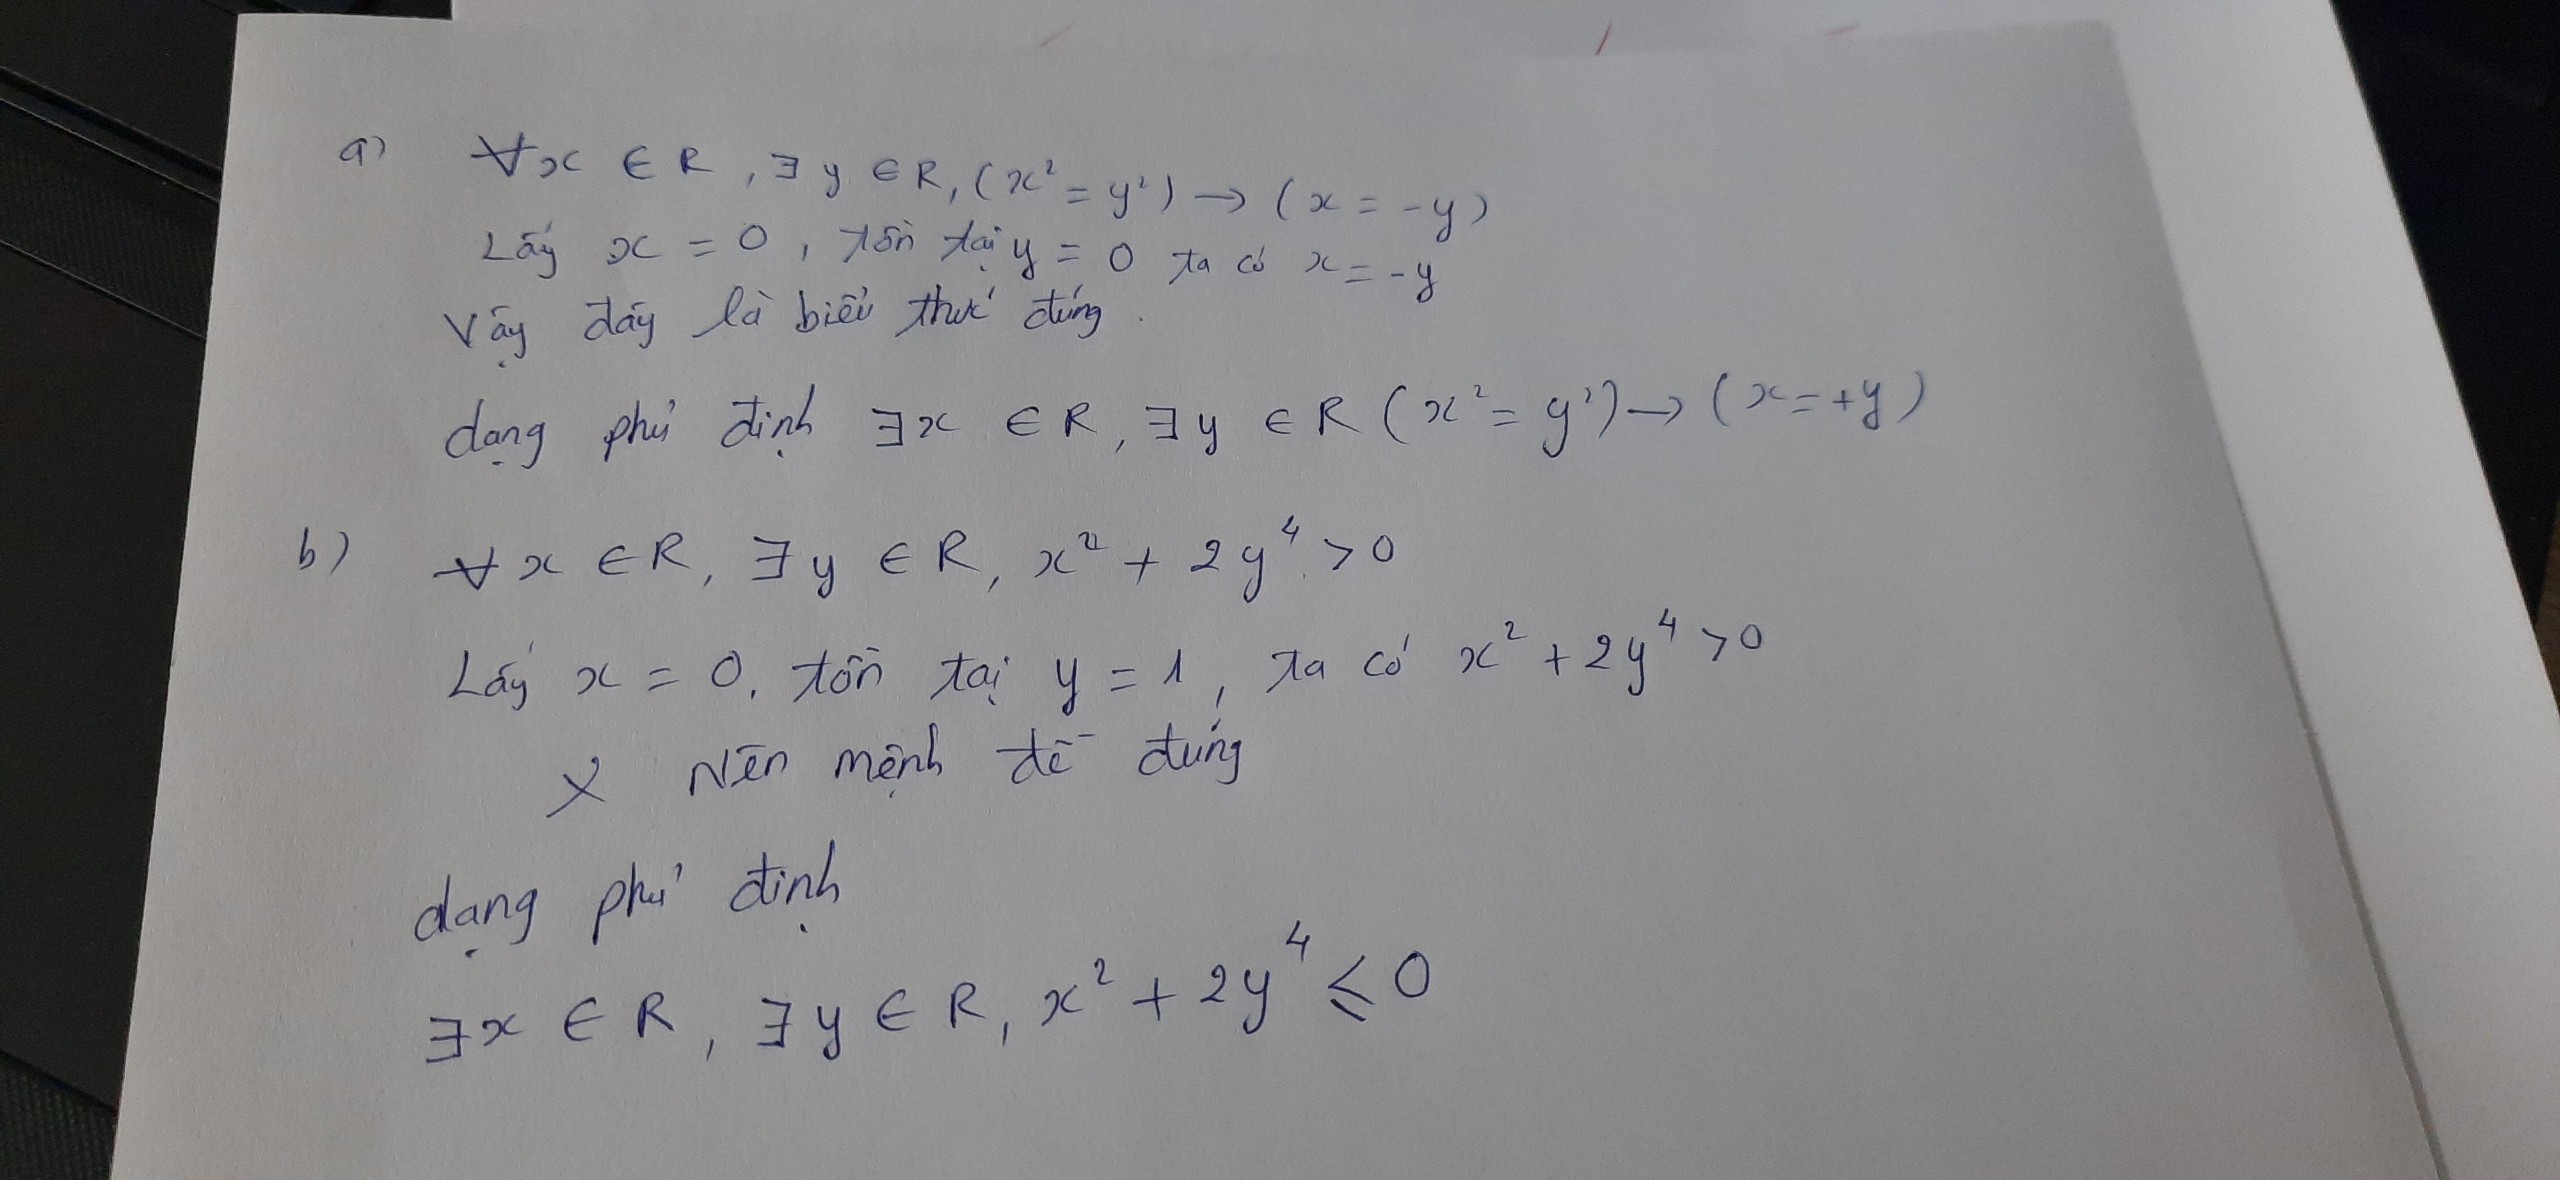 a) ∀x ∈ R, ∃y ∈ R, (x² = y²) → (x = -y)
Lấy x = 0, tồn tại y = 0 ta có x = -y
Vậy đây là biểu thức đúng.
dạng phủ định ∃x ∈ R, ∃y ∈ R (x² = y²) → (x = +y)
b) ∀x ∈ R, ∃y ∈ R, x² + 2y⁴ > 0
Lấy x = 0, tồn tại y = 1, ta có x² + 2y⁴ > 0
Nên mệnh đề đúng
dạng phủ định
∃x ∈ R, ∃y ∈ R, x² + 2y⁴ ≤ 0